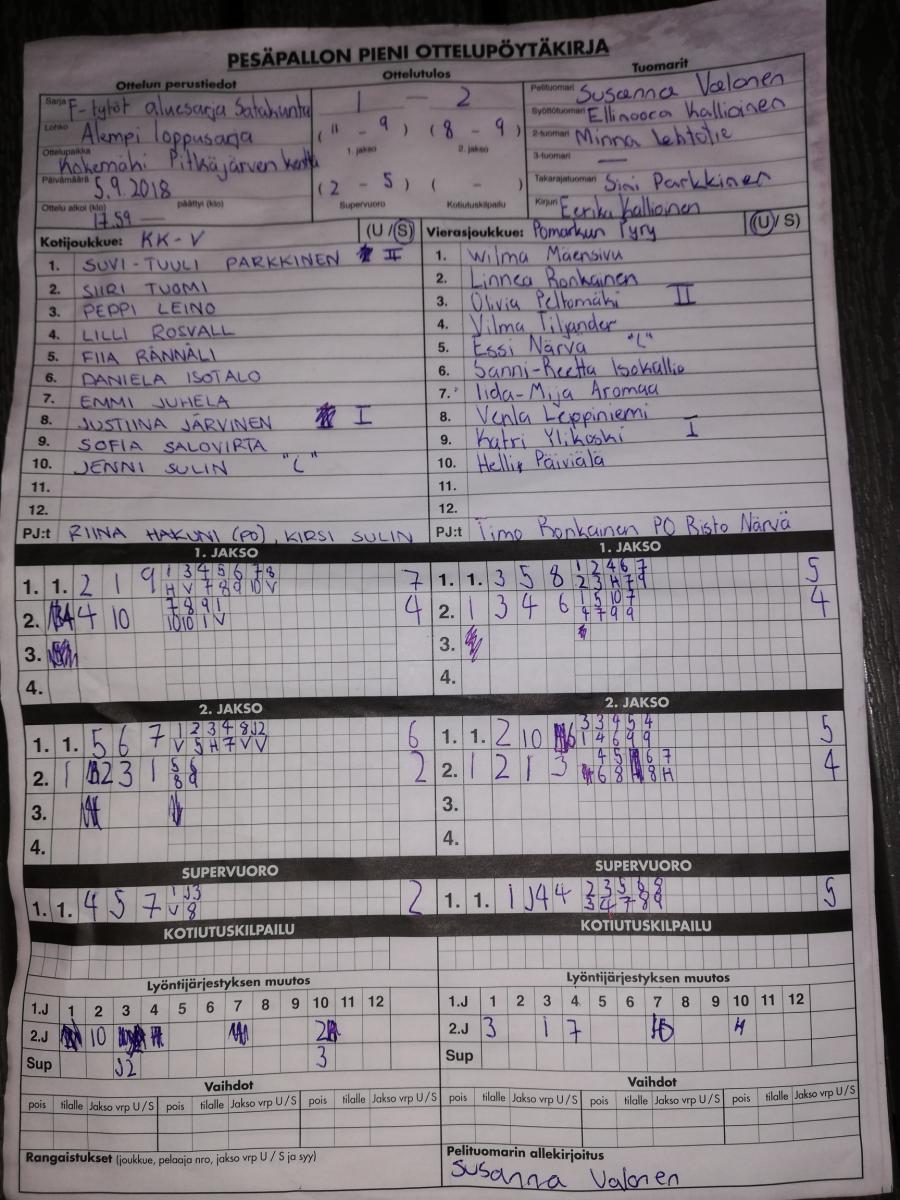 PESÄPALLON PIENI OTTELUPÖYTÄKIRJA
Ottelun perustiedot Ottelutulos Tuomarit
Sarja F-tytöt aluesarja Satakunta
Lohko Alempi loppusarja
Ottelupaikka Kokemäki Pitkäjärven kenttä
Päivämäärä 5.9.2018
Ottelu alkoi (klo) 17.59 — päättyi (klo)
1 — 2
(11 - 9) (8 - 9)
1. jakso 2. jakso
(2 - 5) ( - )
Supervuoro Kotiutuskilpailu
Pelituomari Susanna Valonen
Syöttötuomari Ellinoora Kallioinen
2-tuomari Minna Lehtotie
3-tuomari —
Takarajatuomari Sini Parkkinen
Kirjuri Eerika Kallioinen
Kotijoukkue: KK-V (U / S)
1. SUVI-TUULI PARKKINEN II
2. SIIRI TUOMI
3. PEPPI LEINO
4. LILLI ROSVALL
5. FIIA RÄNNÄLI
6. DANIELA ISOTALO
7. EMMI JUHELA
8. JUSTIINA JÄRVINEN I
9. SOFIA SALOVIRTA
10. JENNI SULIN "C"
11.
12.
PJ:t RIINA HAKUNI (PO), KIRSI SULIN
Vierasjoukkue: Pomarkun Pyry (U / S)
1. Wilma Mäensivu
2. Linnea Ronkainen
3. Olivia Peltomäki II
4. Vilma Tiljander
5. Essi Närvä "C"
6. Sanni-Reetta Isokallio
7. Iida-Mija Aromaa
8. Venla Leppiniemi
9. Katri Ylikoski I
10. Helli Päiviälä
11.
12.
PJ:t Timo Ronkainen PO Risto Närvä
1. JAKSO
1. 1. 2 1 9 1 3 4 5 6 7 8 7
H V 7 8 9 10 V
2. 4 10 7 8 9 1 4
10 10 1 V
3.
4.
1. JAKSO
1. 1. 3 5 8 1 2 4 6 7 5
2 3 H 7 9
2. 1 3 4 6 1 5 10 7 4
4 7 9 9
3.
4.
2. JAKSO
1. 1. 5 6 7 1 2 3 4 8 J2 6
V 5 H 7 V V
2. 1 2 3 1 5 6 2
8 9
3.
4.
2. JAKSO
1. 1. 2 10 6 3 3 4 5 4 5
1 4 6 9 9
2. 1 2 1 3 4 5 6 7 4
6 8 8 H
3.
4.
SUPERVUORO
1. 1. 4 5 7 1 J3 2
V 8
SUPERVUORO
1. 1. 1 J4 4 2 3 5 6 8 5
3 4 7 8 9
KOTIUTUSKILPAILU
KOTIUTUSKILPAILU
Lyöntijärjestyksen muutos
1.J 1 2 3 4 5 6 7 8 9 10 11 12
2.J 10 2
Sup J2 3
Lyöntijärjestyksen muutos
1.J 1 2 3 4 5 6 7 8 9 10 11 12
2.J 3 1 7 10 4
Sup
Vaihdot
pois tilalle Jakso vrp U / S pois tilalle Jakso vrp U / S pois tilalle Jakso vrp U / S
Vaihdot
pois tilalle Jakso vrp U / S pois tilalle Jakso vrp U / S pois tilalle Jakso vrp U / S
Rangaistukset (joukkue, pelaaja nro, jakso vrp U / S ja syy)
Pelituomarin allekirjoitus
Susanna Valonen